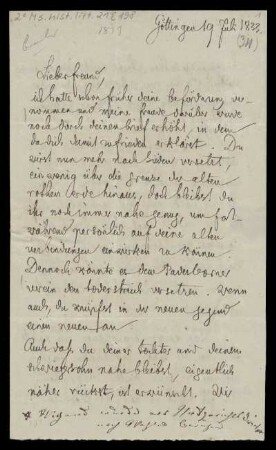 2° Ms. hist. litt.
Göttingen 19 Juli 1833
Lieber freund,
ich hatte schon früher deine beförderung ver-
nommen und meine freude darüber wurde
noch durch deinen brief erhöht, in dem
du dich damit zufrieden erklärst. Du
wirst nun mehr nach Süden versetzt,
ein wenig über die grenze der alten
rothen erde hinaus, doch bleibst du
ihr noch immer nahe genug, um fort-
während persönlich auf deine alten
verbindungen einwirken zu können
Dennoch könnte es dem Paderborner
verein den todesstreich versetzen. Wenn
auch, du knüpfst in der neuen gegend
einen neuen an
Auch daß du deiner tochter und deinem
schwiegersohn nahe bleibst, eigentlich
näher rückst, ist erwünscht.